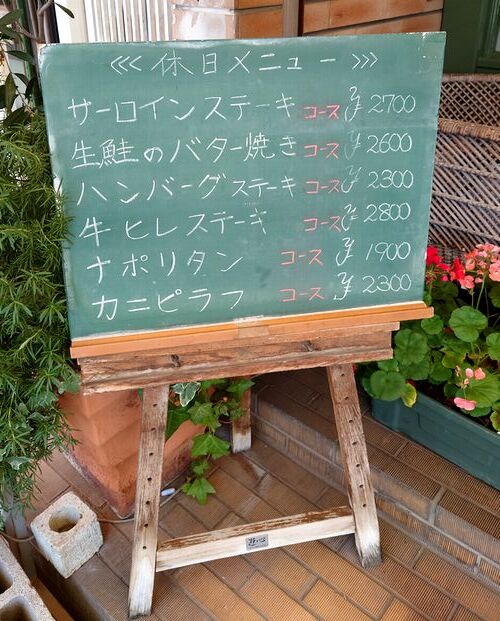 <<< 休日メニュー >>>
サーロインステーキ コース ¥2700
生鮭のバター焼き コース ¥2600
ハンバーグステーキ コース ¥2300
牛ヒレステーキ コース ¥2800
ナポリタン コース ¥1900
カニピラフ コース ¥2300